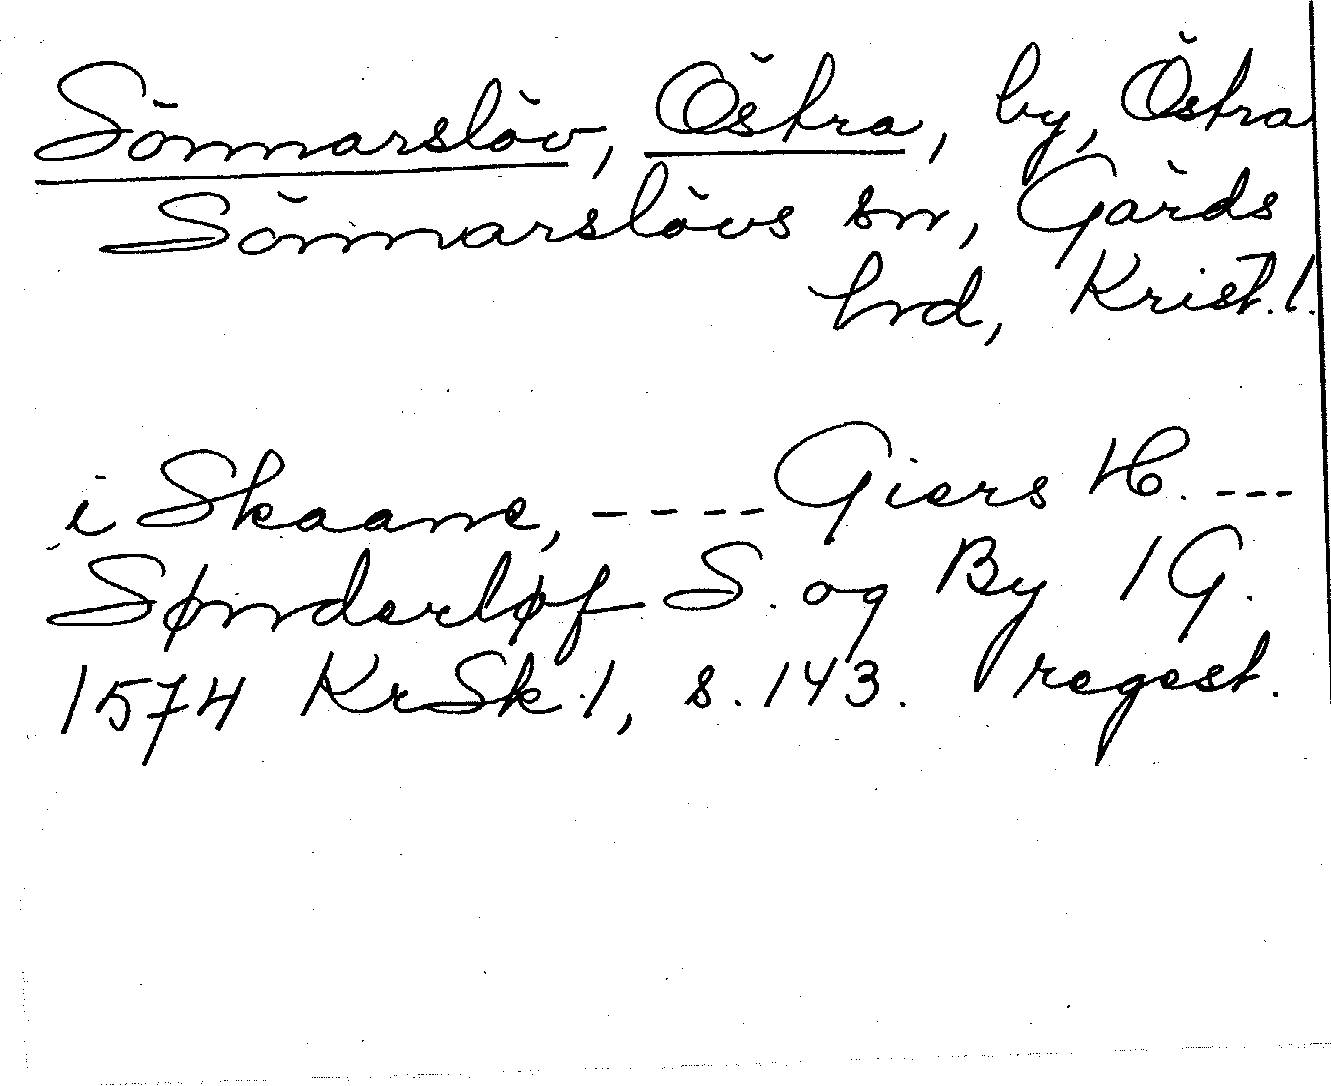 Sönnarslöv, Östra, by, Östra
Sönnarslövs sn, Gärds
hrd, Krist. l.
i Skaane, ---- Giers H. ---
Sønderløf S. og By 1 G.
1574 KrSk 1, s. 143. regest.